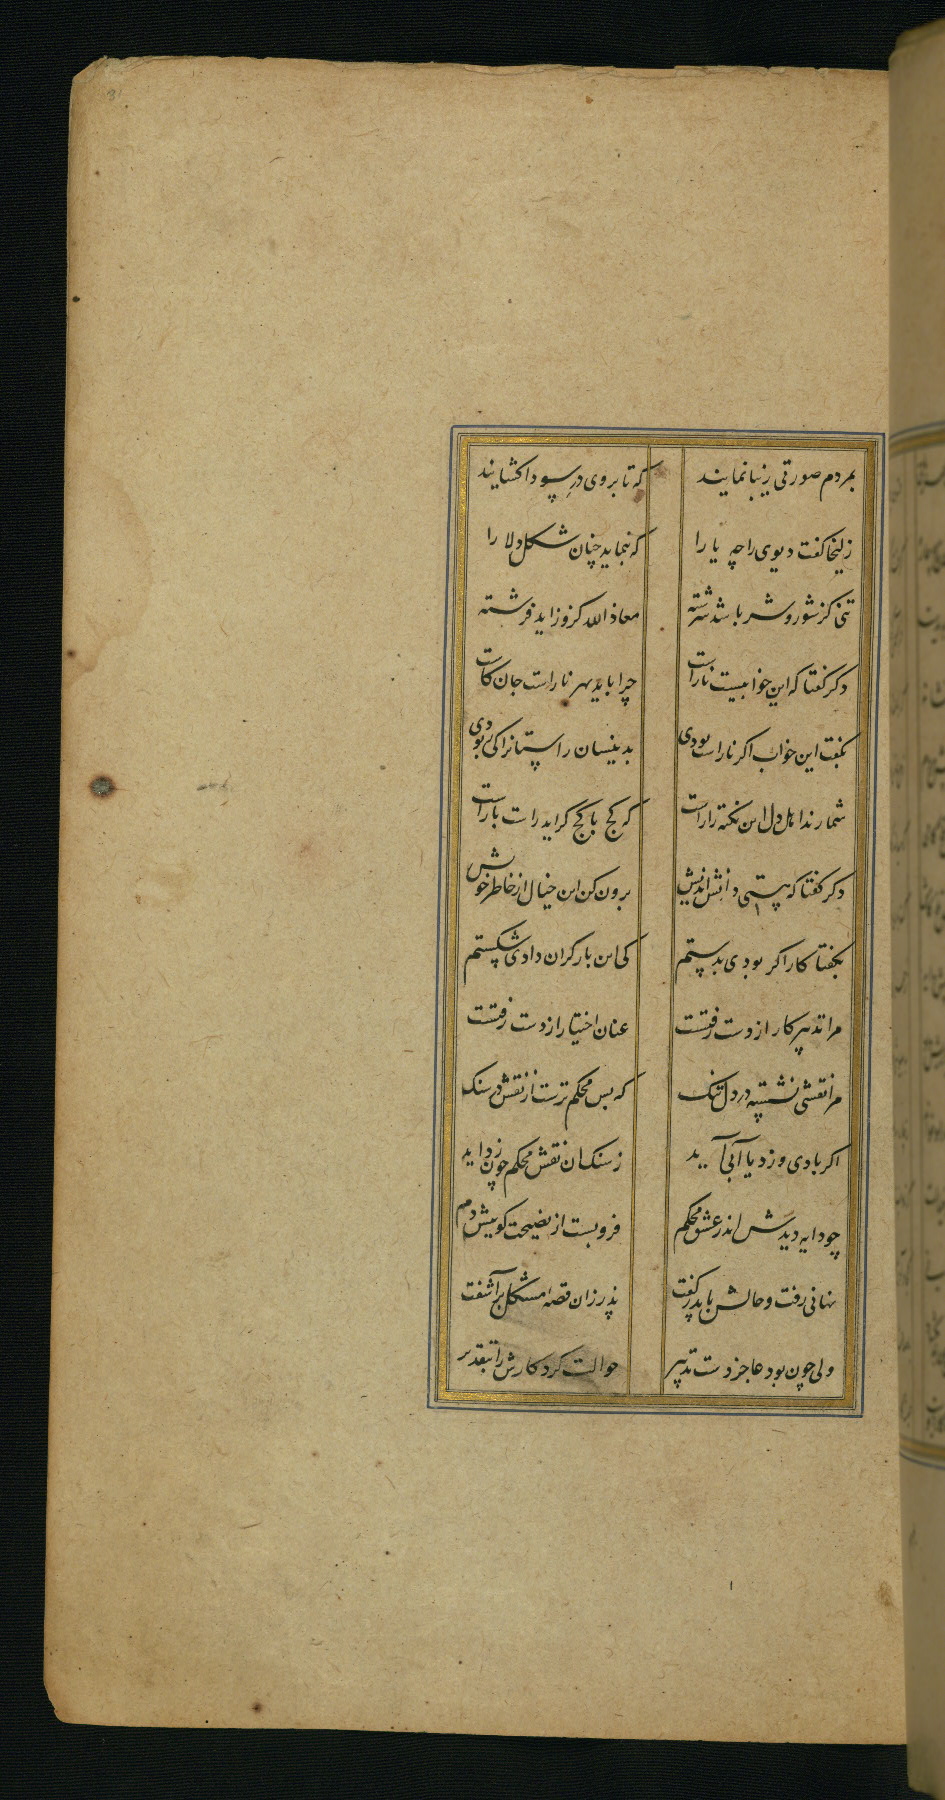 بمردم صورتی زیبا نمایند که تا بر وی در سودا کشایند
زلیخا کفت دیوی را چه یارا که بنماید چنان شکل دلارا
تنی کز شور و شر باشد سرشته معاذ الله کزو زاید فرشته
دکر کفتا که این خوابیست ناراست چرا باید بهر ناراست جان کاست
بکفت این خواب اکر ناراست بودی بدینسان راستانرا کی ربودی
شمارند اهل دل این نکته را راست که کج با کج کراید راست با راست
دکر کفتا که هستی دانش اندیش برون کن این خیال از خاطر خویش
بکفتا کار اکر بودی بدستم کی این بار کران دادی شکستم
مرا تدبیر کار از دست رفتست عنان اختیار از دست رفتست
مرا نقشی نشسته در دل تنک که بس محکم ترست از نقش در سنک
اکر بادی وزد یا آبی آید ز سنک آن نقش محکم چون زداید
چو دایه دیدش اندر عشق محکم فرو بست از نصیحت کوییش دم
نهانی رفت و حالش با پدر کفت پدر زان قصهٔ مشکل برآشفت
ولی چون بود عاجز دست تدبیر حوالت کرد کارش را بتقدیر